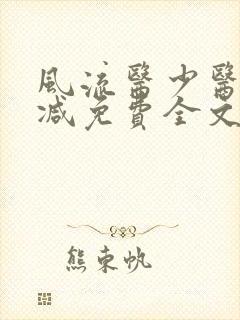 風流醫少醫
减免費全文
熊東帆